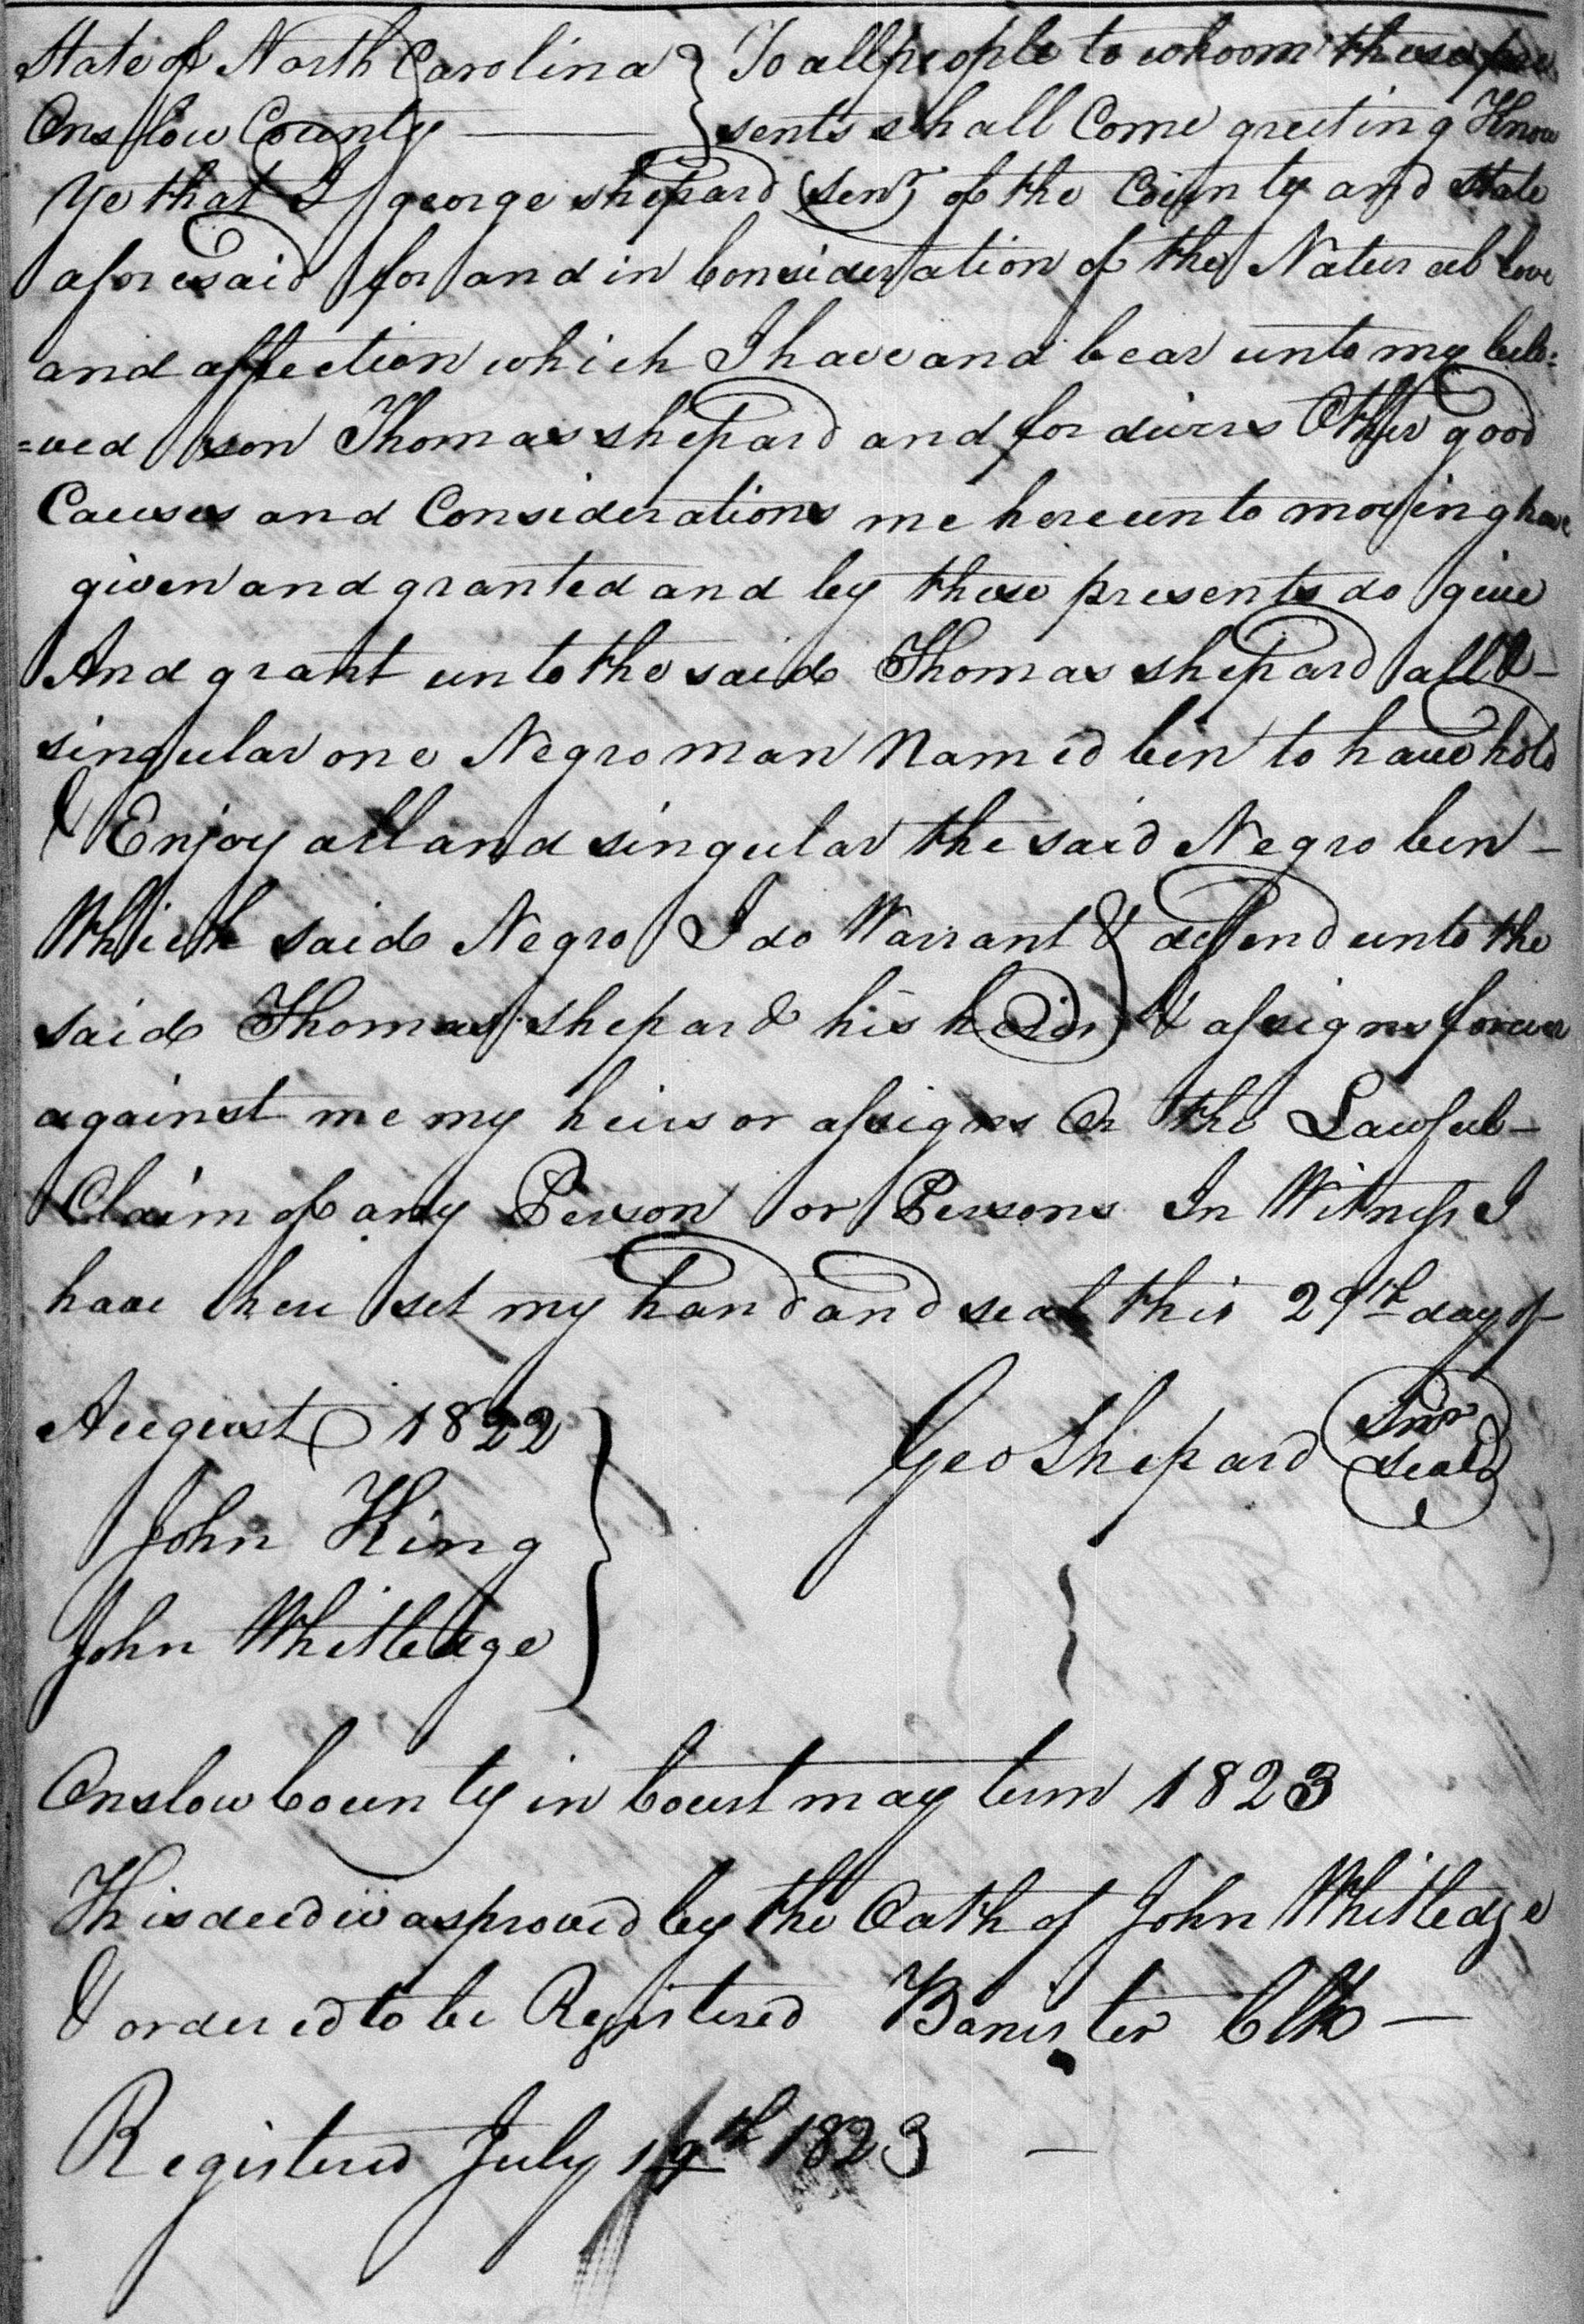 State of North Carolina } To all people to whoom these pre
Onslow County —— } sents shall Come greeting Know
Ye that I george shepard (Senr) of the County and State
aforesaid for and in Consideration of the Natural love
and affection which I have and bear unto my belo=
=ved son Thomas shepard and for divers Other good
Causes and Considerations me hereunto moving have
given and granted and by these presents do give
And grant unto the said Thomas shepard all &
singular one Negro man Named ben to have hold
& Enjoy all and singular the said Negro ben —
Which said Negro I do Warrant & defend unto the
said Thomas shepard his heirs & assigns forever
against me my heirs or assigns Or the Lawful —
Claim of any Person or Persons In Witness I
have here set my hand and seal this 29th day of
August 1822 } Geo Shepard Snr seal
John King
John Whitledge
Onslow County in Court may term 1823
This deed was proved by the Oath of John Whitledge
& ordered to be Registered Banister Clk —
Registered July 19th 1823 —